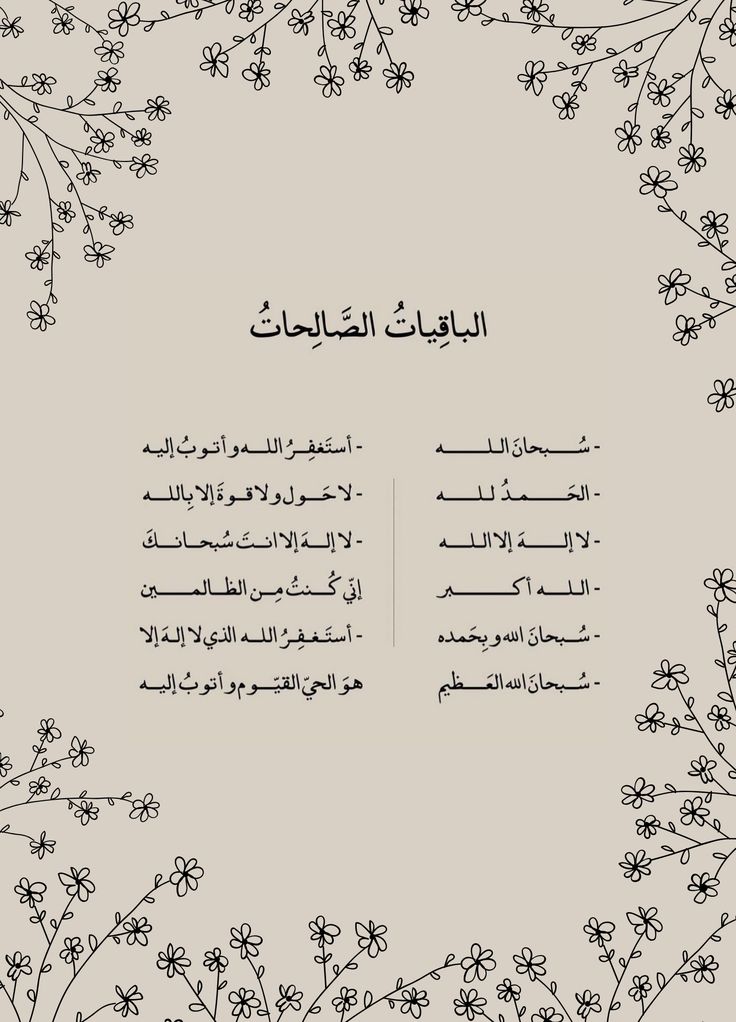 الباقِياتُ الصَّالِحاتُ
- سُبحانَ الله
- الحَمدُ لله
- لا إلهَ إلا الله
- الله أكبر
- سُبحانَ الله وبِحَمده
- سُبحانَ الله العَظيم
- أستَغفِرُ الله وأتوبُ إليه
- لا حَول ولا قوةَ إلا بِالله
- لا إلهَ إلا انتَ سُبحانكَ
إنّي كُنتُ مِن الظالمين
- أستَغفِرُ الله الذي لا إلهَ إلا
هوَ الحيّ القيّوم وأتوبُ إليه